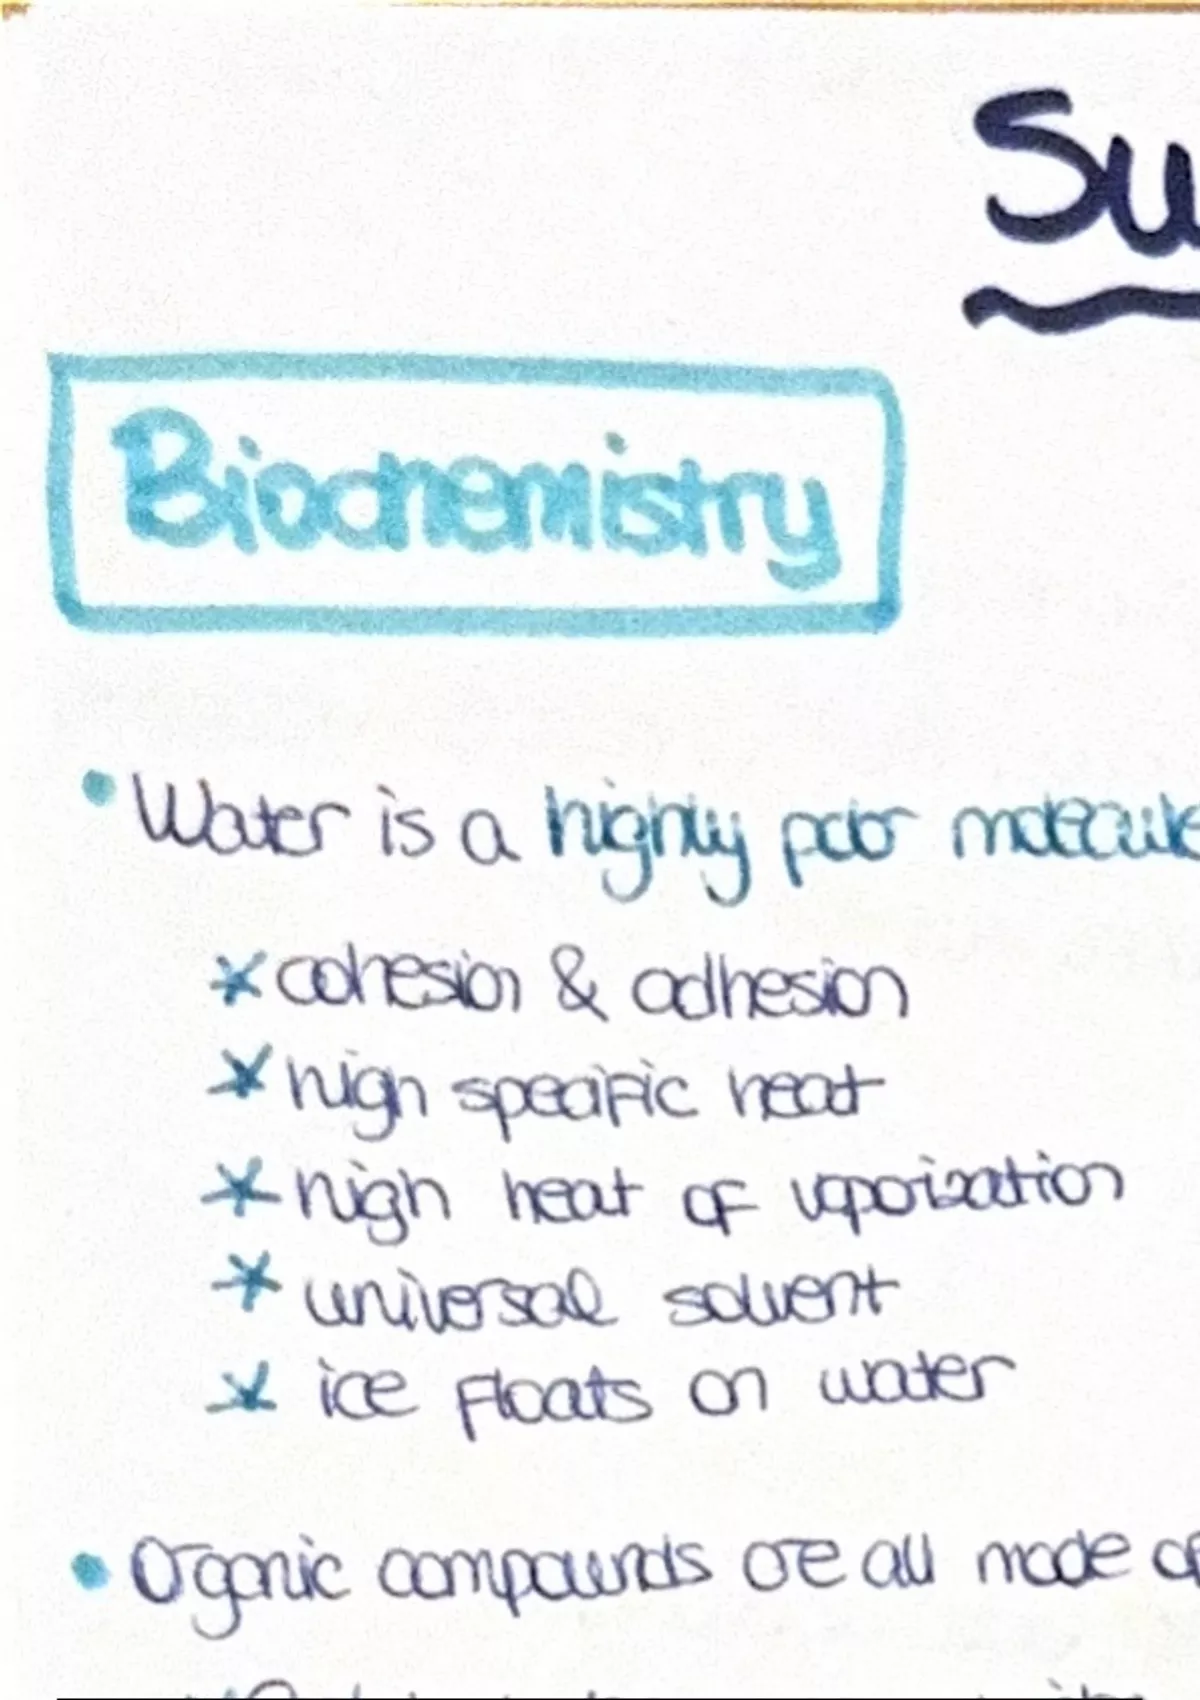 Su
Biochemistry
• Water is a highly polar molecule
* cohesion & adhesion
* high specific heat
* high heat of vaporization
* universal solvent
* ice floats on water
• Organic compounds are all made of